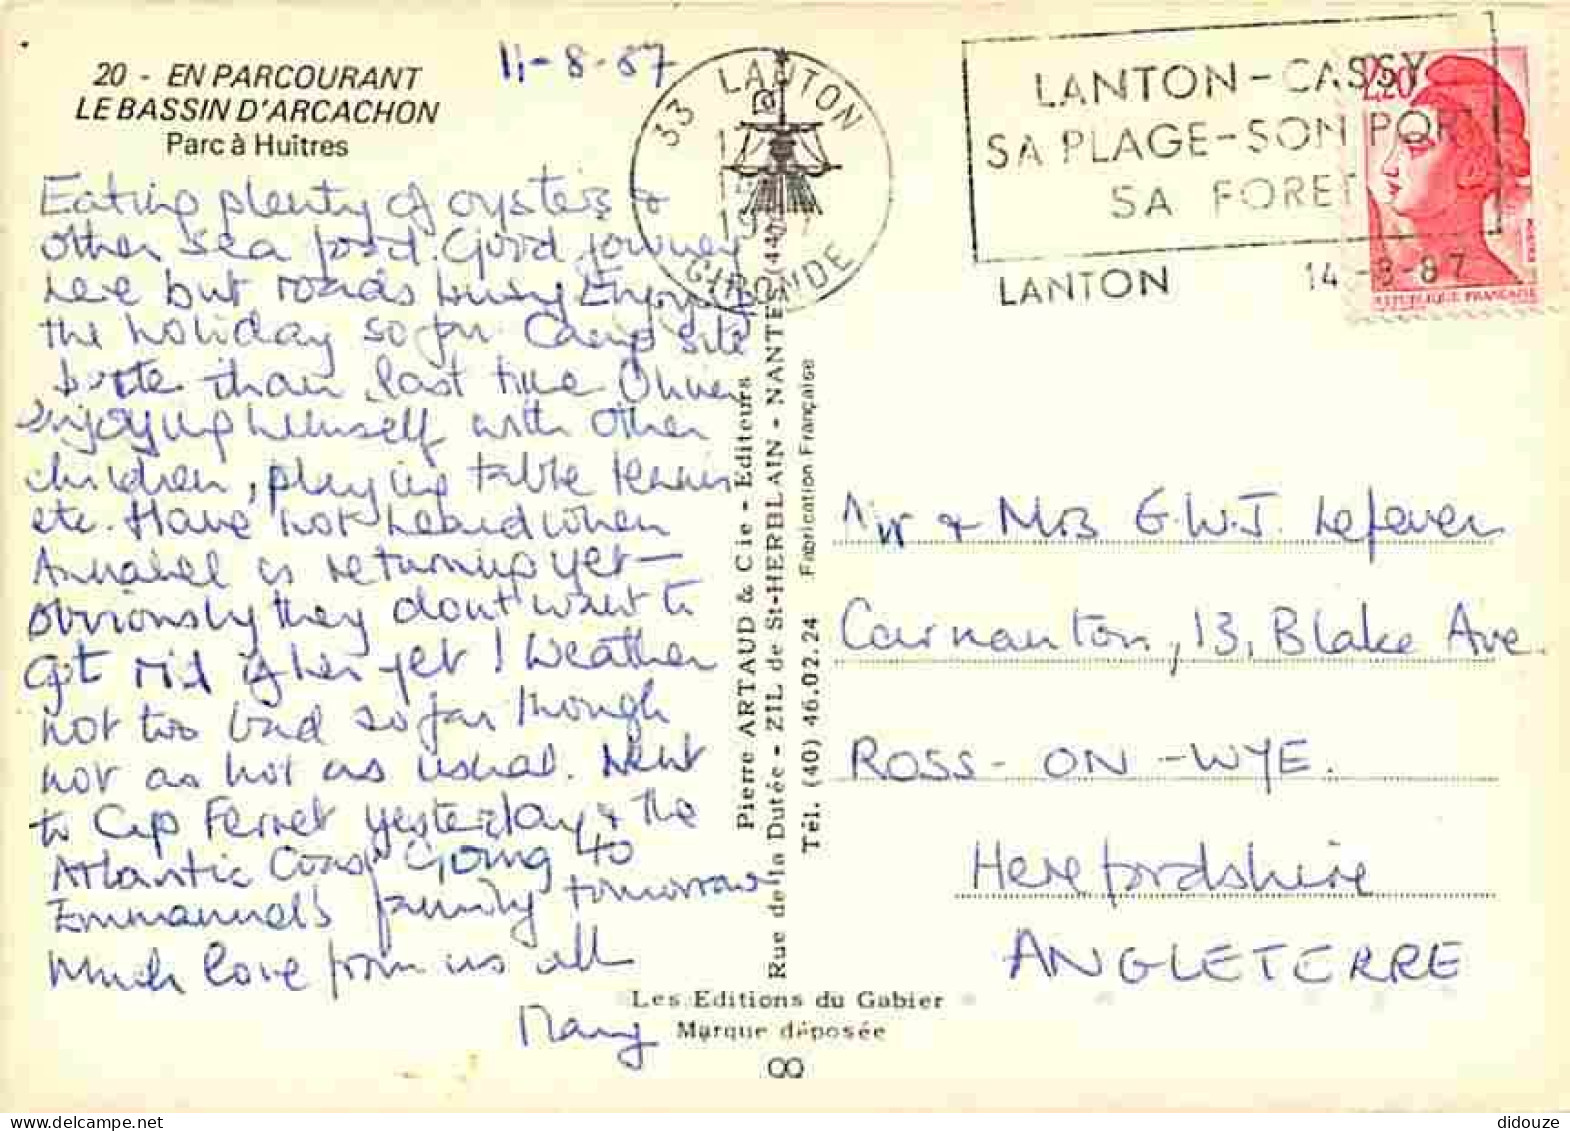 20 - EN PARCOURANT
LE BASSIN D'ARCACHON
Parc à Huîtres
11-8-87
Eating plenty of oysters &
other sea food. Good journey
here but roads busy Enjoying
the holiday so far Camp site
than last time Oliver
enjoying himself with other
children, playing table tennis
etc. Have not heard when
Annabel is returning yet —
obviously they dont want to
get rid of her yet! Weather
not too bad so far though
not as hot as usual. Went
to Cap Ferret yesterday & the
Atlantic Coast Going to
Emmanuel's family tomorrow
Much love from us all
Mary
33 LANTON
GIRONDE
LANTON-CASSY
SA PLAGE-SON PORT
SA FORET
LANTON 14-8-87
2,20
REPUBLIQUE FRANÇAISE
Pierre ARTAUD & Cie - Editeurs
Rue de la Dutée - ZIL de St-HERBLAIN - NANTES (44)
Tél. (40) 46.02.24 Fabrication Française
Mr & Mrs G.W.J. Lefever
Carnanton, 13, Blake Ave.
ROSS-ON-WYE.
Herefordshire
ANGLETERRE
Les Editions du Gabier
Marque déposée
didouze